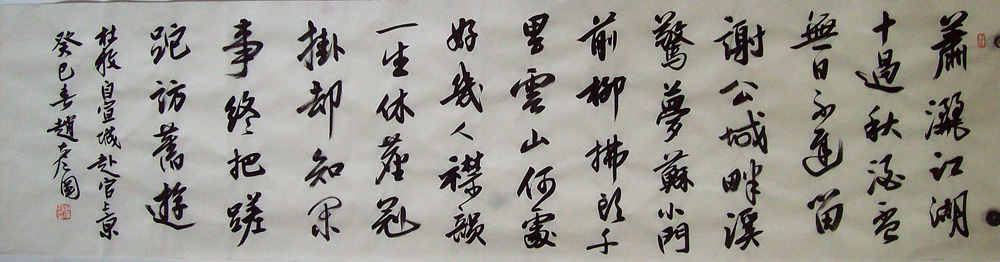 蕭灑江湖
十過秋酒盃
無日不遲留
謝公城畔溪
驚夢蘇小門
前柳拂頭千
里雲山何處
好幾人襟韻
一生休塵冠
掛却知閑
事終把蹉
跎訪舊遊
杜牧自宣城赴官上京
癸巳春趙彦